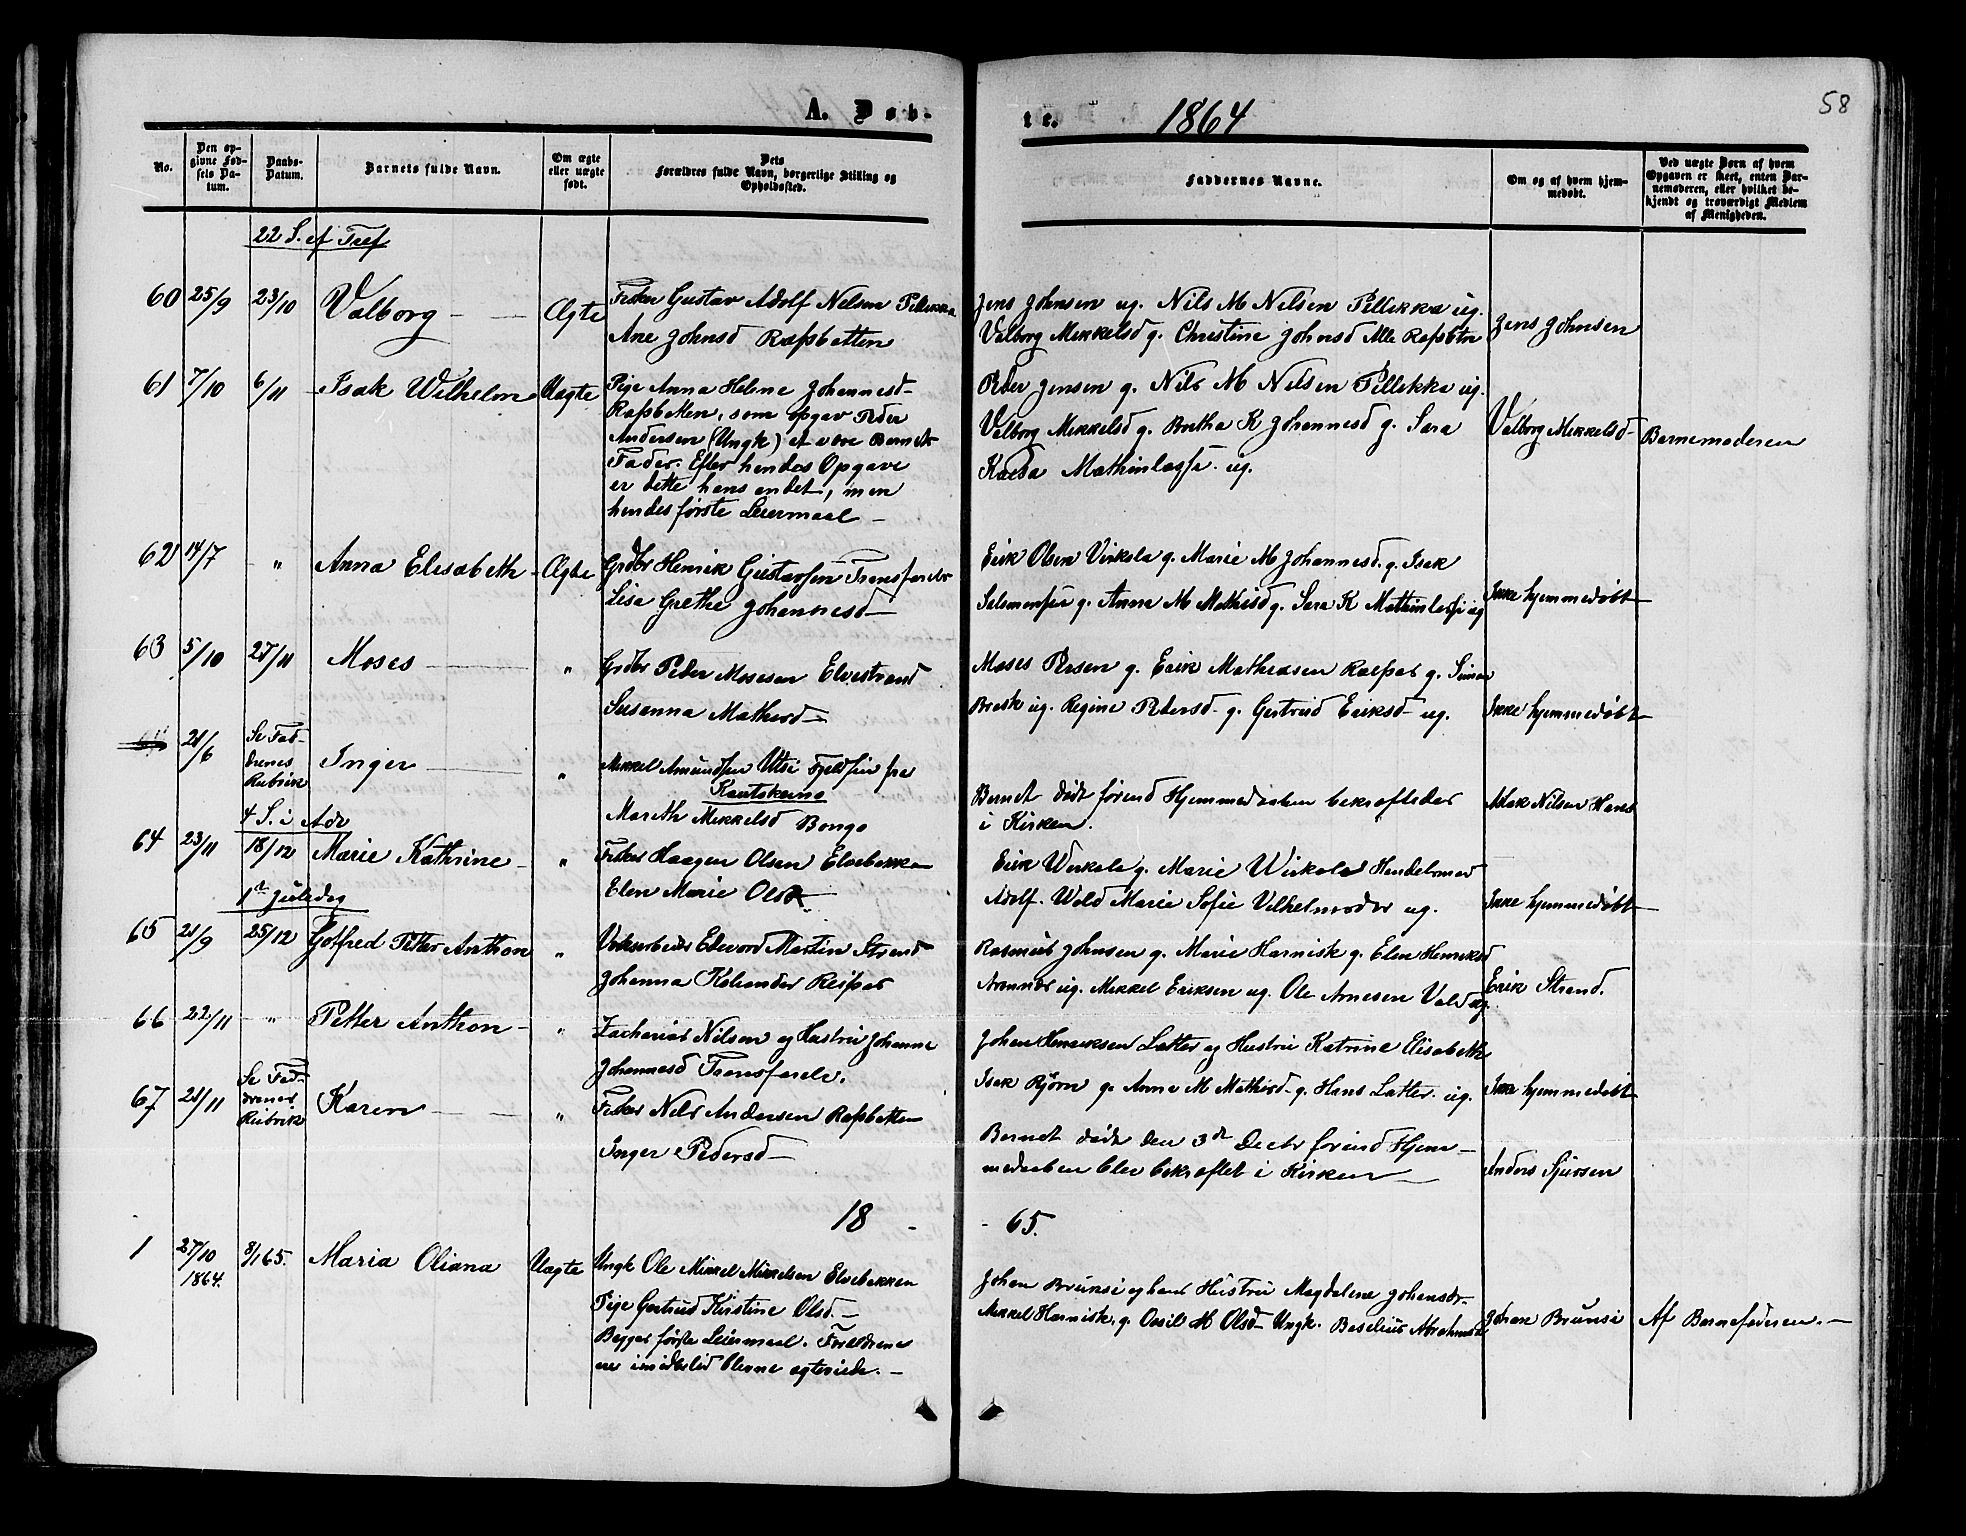 58
A. Døb-
te. 1864
No.
Den op-
givne Fød-
sels Da-
tum.
Daabs-
Datum.
Barnets fulde Navn.
Om ægte
eller uægte
født.
Dets
Forældres fulde Navn, borgerlige Stilling og
Opholdssted.
Faddernes Navne.
Om og af hvem hjem-
medøbt.
Ved uægte Børn af hvem
Opgaven er skeet, enten Bar-
nemoderen, eller hvilket be-
kjendt og troværdigt Medlem
af Menigheden.
22 S. ef Tref
60 25/9 23/10 Valborg — Ægte
Fisker Gustav Adolf Nilsen Pillikka
Ane Johnsd Rafsbotten
Jens Johnsen ug. Nils M Nilsen Pillikka ug.
Valborg Mikkelsd g. Christine Johnsd Alle Rafsbtn
Jens Johnsen
61 7/10 6/11 Isak Wilhelm Uægte
Pige Anna Helene Johannesd-
Rafsbotten, som opgav Peder
Andersen (Ungk) at være Barnets
Fader. Efter hendes Opgave
er dette hans andet, men
hendes første Leiermaal —
Peder Jensen g. Nils M Nilsen Pillikka ug.
Valborg Mikkelsd g. Brithe K Johannesd g. Sara
Kaisa Mathinlassi. ug.
Valborg Mikkelsd-
Barnemoderen
62 14/7 " Anna Elisabeth - Ægte
Grdbr Henrik Gustavsen Tranfarelv
Lisa Grethe Johannesd—
Erik Olsen Virkola g. Marie M Johannesd. g. Isak
Salamonsen g. Anna M Mathisd g. Sara K Mathinlassi ug
Ikke hjemmedøbt
63 5/10 27/11 Moses — "
Grdbr Peder Mosesen Elvestrand
Susanna Mathisd—
Moses Persen g. Erik Matheasen Raipas g. Simon
Brask ug. Regine Pedersd- g. Gertrud Eriksd- ug.
Ikke hjemmedøbt
64 21/6 Se Fad-
drenes
Rubrik
Inger — "
Mikkel Amundsen Utsi Fjeldfin fra
Kautokeino
Marith Mikkelsd Bongo
Barnet døde førend Hjemmedaaben bekræftedes
i Kirken.
Aslak Nilsen Hansd
4 S. i Adv
64 23/11 18/12 Marie Kathrine - "
Fisker Haagen Olsen Elvebakken
Elen Marie Olsd
Erik Wirkola g. Marie Wirkola Handelsmnd
Adolf. Wold Marie Sofie Vilhelmsdtr ug.
Ikke hjemmedøbt
1ste Juledag
65 21/9 25/12 Gotfred Petter Anthon "
Verksarbeider Edevard Martin Strand
Johanna Kaliander Raipas
Rasmus Johnsen g. Marie Harnisk g. Elen Henriksd
ug. Mikkel Eriksen ug. Ole Arnesen Vold ug.
Erik Strand.
66 22/11 " Petter Anthon - "
Zacharias Nilsen og Hustru Johanne
Johannesd Tranfarelv.
Johan Henriksen Latter og Hustru Katrine Elisabeth
Isak Björn g. Anna M Mathisd- g. Hans Latter. ug.
Ikke hjemmedøbt
67 21/11 Se Fad-
drenes
Rubrik
Karen — "
Fisker Nils Andersen Rafsbotten
Inger Pedersd—
Barnet døde den 3de Decbr førend Hjem-
medaaben blev bekræftet i Kirken —
Anders Sjursen
18 - - 65.
1 27/10
1864.
8/1 65. Maria Oliana Uægte
Ungk Ole Mikkel Mikkelsen Elvebakken
Pige Gertrud Kirstine Olsd.—
Begges første Leiermaal. Forældrene
ere imidlertid blevne ægteviede. —
Johan Brunsi og hans Hustru Magdalene Johansdr-
Mikkel Harnisk. g. M Olsd- Ungk. Baselius Abrahams
Johan Brunsi
Af Barnefaderen. —